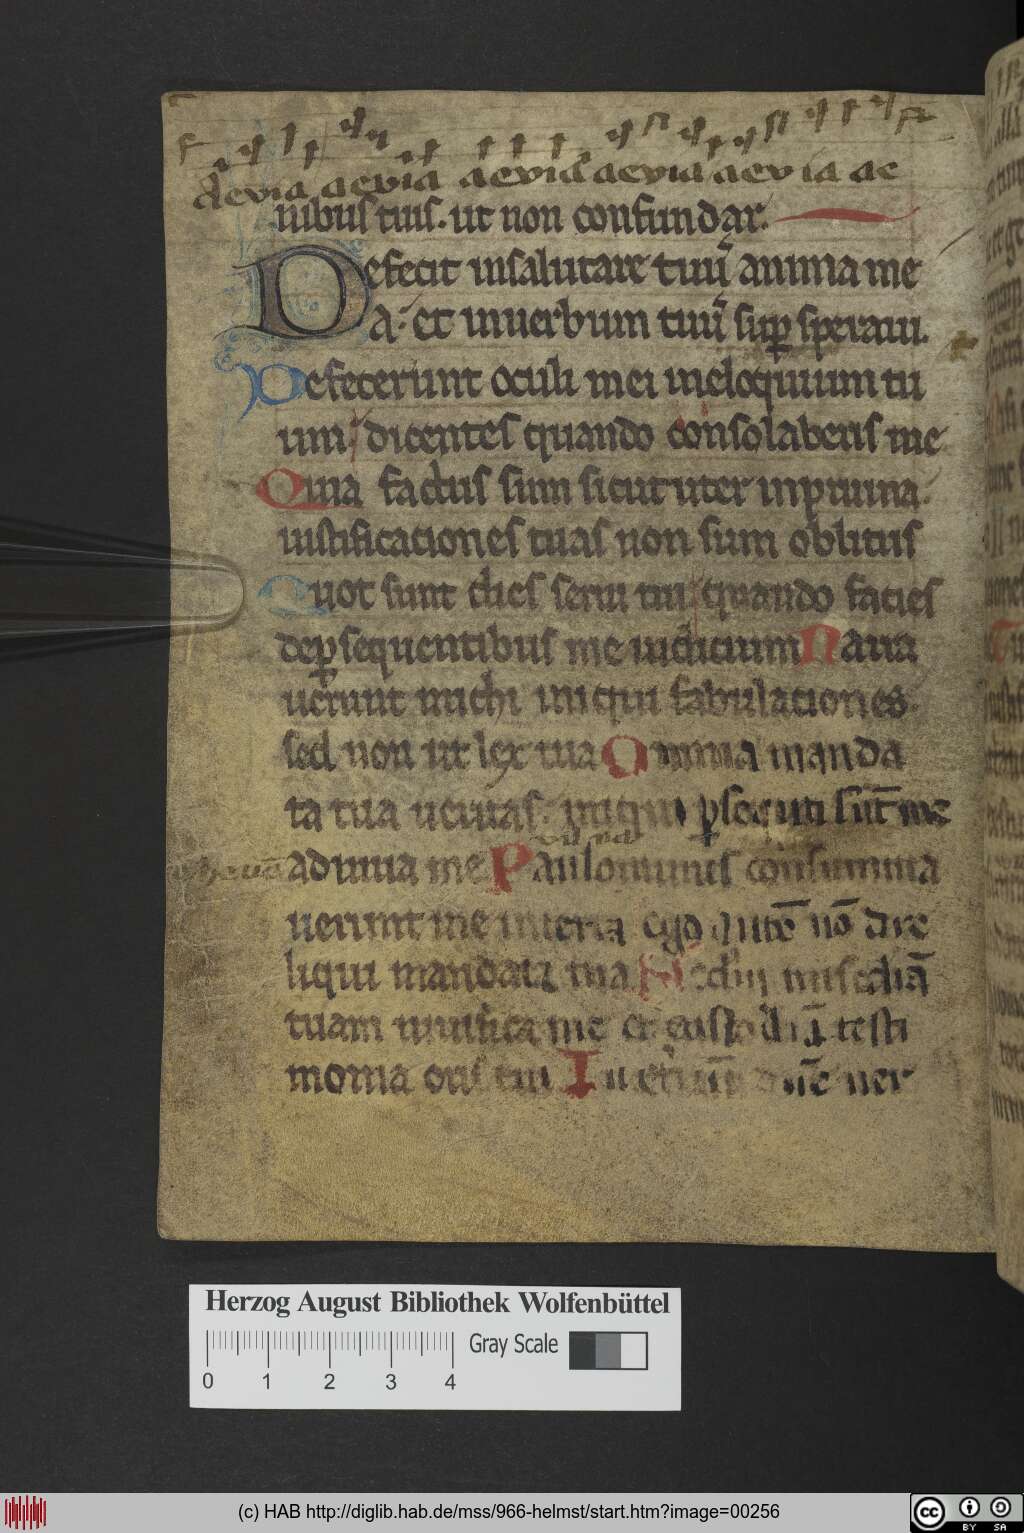 aevia aevia aevia aevia aevia ae
nibus tuis. ut non confundar.
Defecit insalutare tuū anima me
a. et inverbum tuū sup speraui.
Defecerunt oculi mei ineloquium tu
um dicentes quando consolaberis me
Quia factus sum sicut uter inpruina.
iustificationes tuas non sum oblitus
Quot sunt dies serui tui quando facies
depsequentibus me iudicium Narra
uerunt michi iniqui fabulationes.
sed non ut lex tua Omnia manda
ta tua ueritas. iniqui psecuti sūt me
adiuua me Paulominus consumma
uerunt me interra ego autē nō dere
liqui mandata tua
tuam uiuifica me et custodiā testi
monia oris tui In eternū dn̄e uer
Herzog August Bibliothek Wolfenbüttel
Gray Scale
0 1 2 3 4
(c) HAB http://diglib.hab.de/mss/966-helmst/start.htm?image=00256
cc BY SA